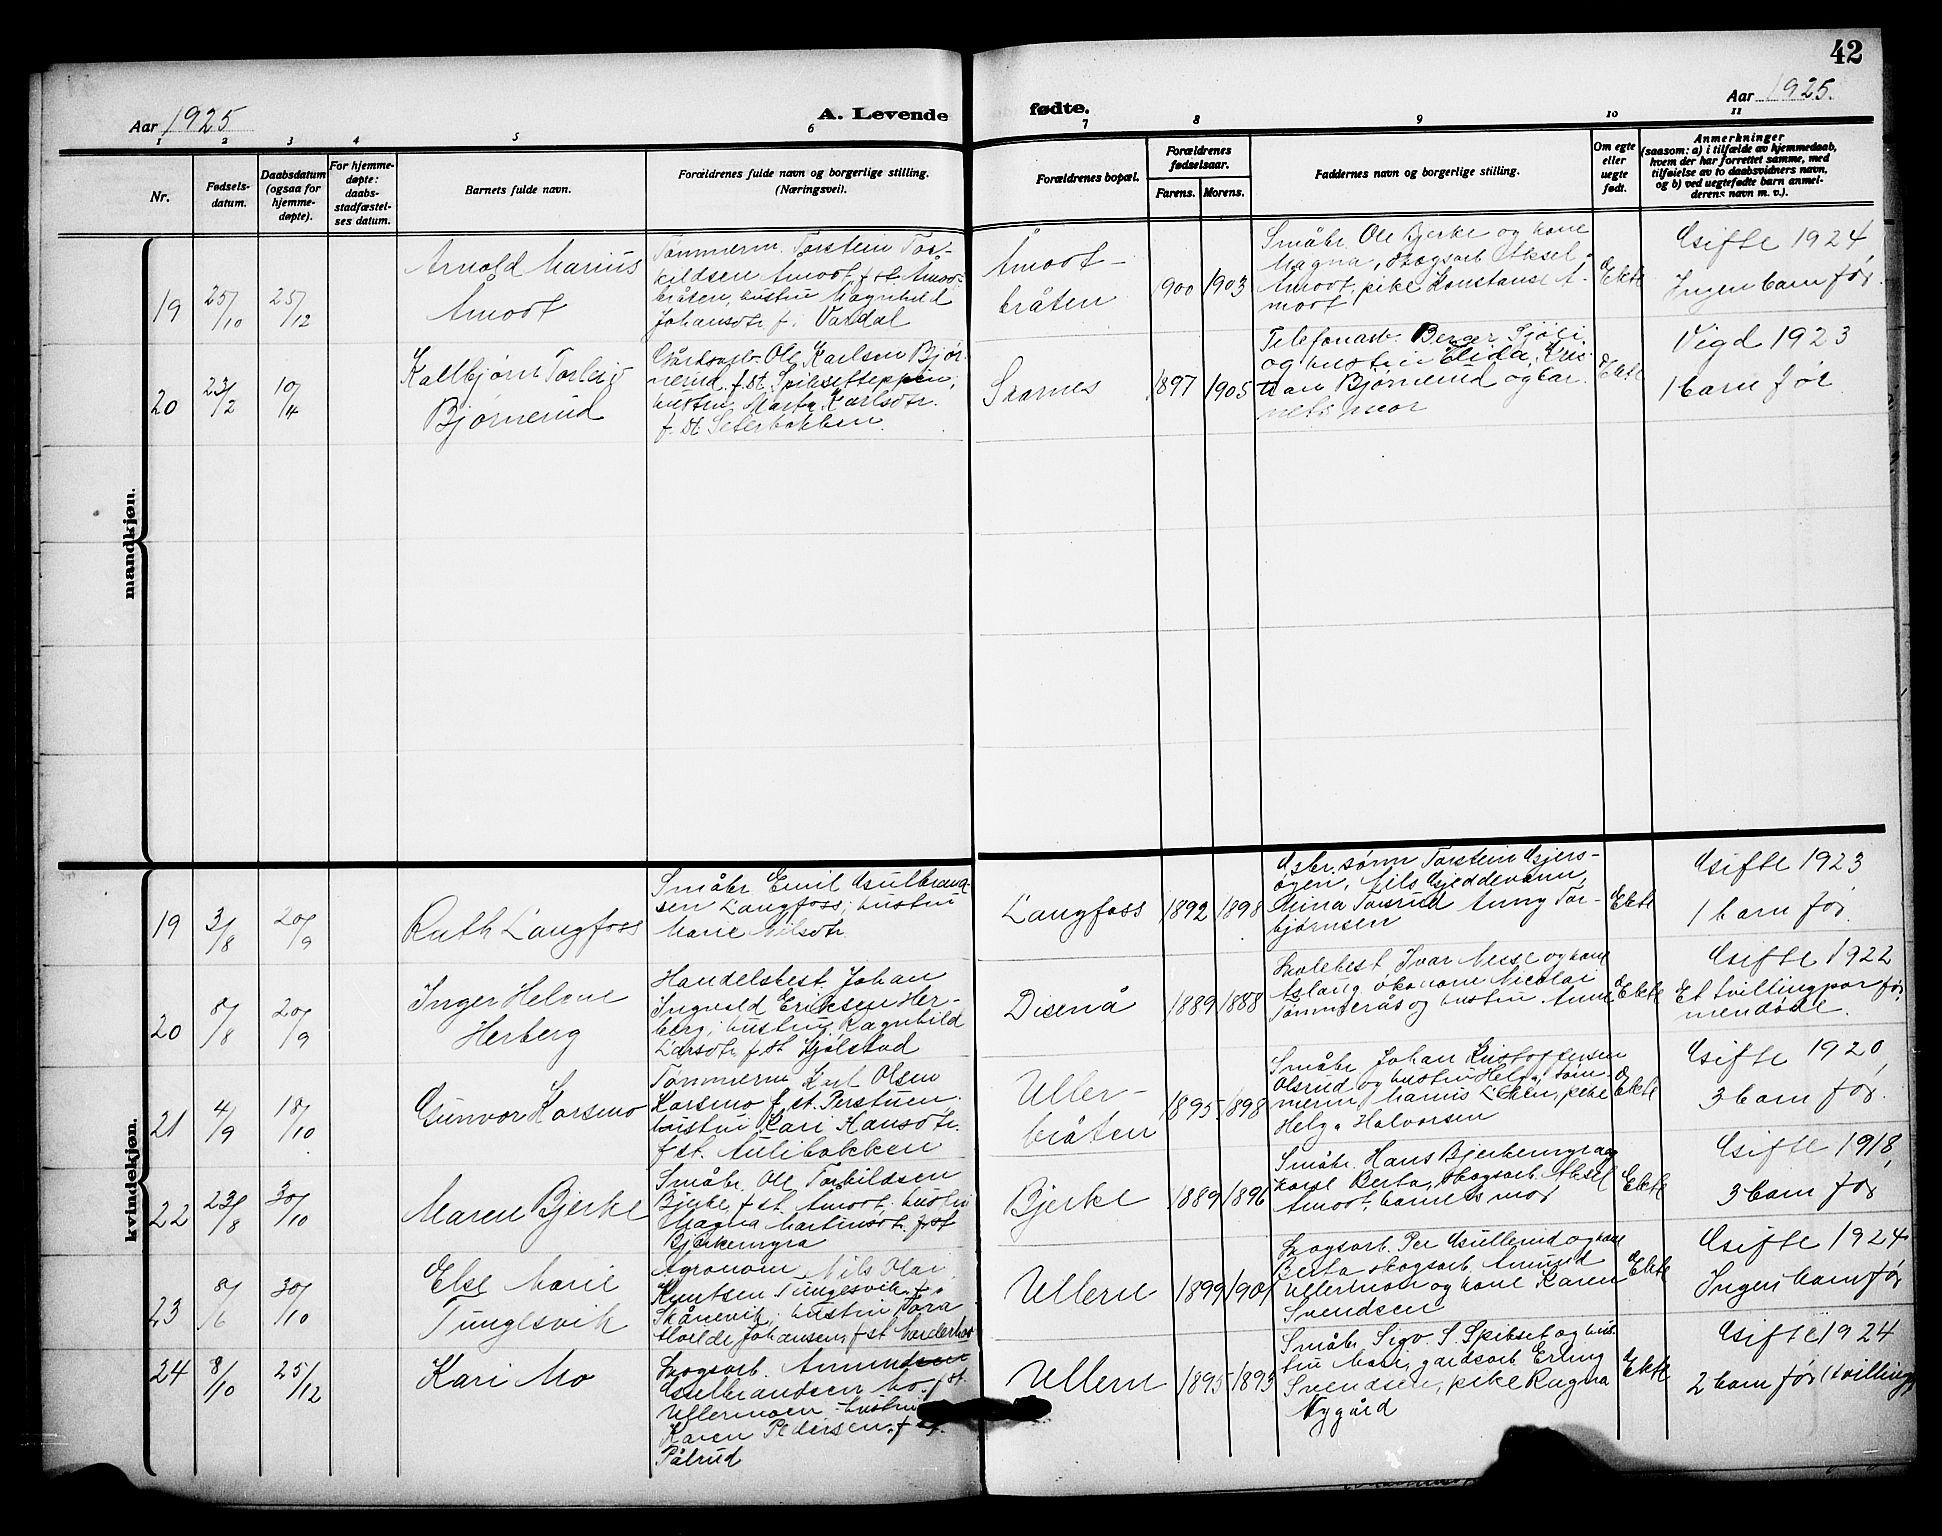 42
Aar 1925
A. Levende
fødte.
Aar 1925.
1 2 3 4 5 6 7 8 9 10 11
Nr.
Fødsels-
datum.
Daabsdatum
(ogsaa for
hjemme-
døpte).
For hjemme-
døpte:
daabs-
stadfæstel-
ses datum.
Barnets fulde navn.
Forældrenes fulde navn og borgerlige stilling.
(Næringsvei).
Forældrenes bopæl.
Forældrenes
fødselsaar.
Farens. Morens.
Faddernes navn og borgerlige stilling.
Om egte
eller
uegte
født.
Anmerkninger
(saasom: a) i tilfælde av hjemmedaab,
hvem der har forrettet samme, med
tilføielse av to daabsvidners navn,
og b) ved uegtefødte barn anmel-
derens navn m. v.).
mandkjøn.
19
25/10
25/12
Arnold Marius
Åmodt
Tømmerm. Torstein Tor-
kildsen Åmodt, f. st. Åmodt-
bråten, hustru Magnhild
Johansdtr. f. i Vardal
Åmodt-
bråten
900
1903
Småbr. Ole Bjerke og kone
Magna, skogsarb. Aksel
Åmodt, pike Konstanse Å-
modt
Ekte
Gifte 1924
Ingen barn før.
20
23/2
10/4
Kallbjørn Torleif
Bjørnerud
Ole Karlsen Bjør-
nerud f. st. Spikseteppen,
hustru Marta Karlsdtr.
f. st. Seterbakken.
Skarnes
1897
1905
Sjøli
og hustru Elida, Kris-
tian Bjørnerud og bar-
nets mor
Ekte
Vigd 1923
1 barn før
kvindekjøn.
19
3/8
20/9
Ruth Langfoss
Småbr. Emil Gulbrand-
sen Langfoss, hustru
Marie Nilsdtr.
Langfoss
1892
1898
Gbr. sønn Torstein Gjers-
øyen, Nils Gjeddevann,
Mina Torsrud Anny Tor-
bjørnsen
Ekte
Gifte 1923
1 barn før.
20
8/8
20/9
Inger Helene
Herberg
Handelsbest. Johan
Ingvald Eriksen Her-
berg, hustru Ragnhild
Larsdtr. f. st. Hjølstad
Disenå
1889
1888
Skolebest. Ivar Muse og kone
Aslaug, økonom Nicolai
Tømmerås og hustru Anna
Ekte
Gifte 1922
Et tvillingpar før,
men døde.
21
4/9
18/10
Gunvor Korsmo
Tømmerm. Karl Olsen
Korsmo f. st. Perstuen.
hustru Kari Hansdtr.
f. st. Aulibakken
Uller-
bråten
1895
1898
Småbr. Johan Kristoffersen
Olsrud og hustru Helga, tøm-
merm. Hanns Lien, pike
Helga Halvorsen
Ekte
Gifte 1920
3 barn før.
22
23/8
30/10
Maren Bjerke
Småbr. Ole Torkildsen
Bjerke, f. st. Åmodt, hustru
Magna Martinsdt. f. st.
Bjerkemyra
Bjerke
1889
1896
Småbr. Hans Bjerkemyra og
kone Berta, skogsarb. Aksel
Åmodt, barnets mor
Ekte
Gifte 1918,
3 barn før
23
8/6
30/10
Else Marie
Tungesvik
Agronom Nils Olai
Knutsen Tungesvik, f. i
Skånevik, hustru Tora
Alvilde Johansen, f. st.
Ullern
1899
1901
Skogsarb. Per Gullerud og kone
Berta, skogsarb. Amund
Ullernmoen og kone Karen
Svendsen
Ekte
Gifte 1924
Ingen barn før
24
8/10
25/12
Kari Mo
Skogsarb. Amundsen
Gulbrandsen Mo, f. st.
Ullernmoen hustru
Karen Pedersen, f. st.
Pålrud
Ullern
1895
1893
Småbr. Sigv. S. Spikset og hus-
tru Mari, gardsarb. Erling
Svendsen, pike Ragna
Nygård
Ekte
Gifte 1924
2 barn før (tvilling)